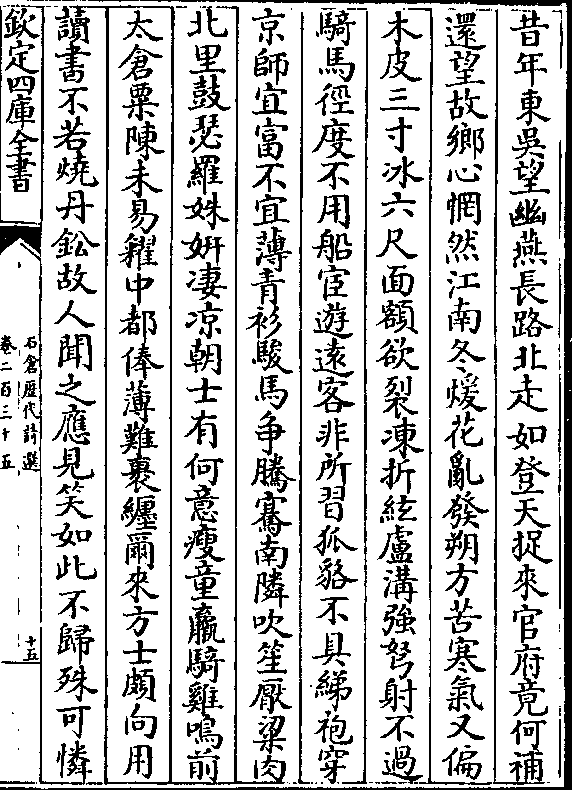 昔年東吳望幽燕長路北走如登天捉來官府竟何補
還望故鄉心惘然江南冬煖花亂發朔方苦寒氣又偏
木皮三寸冰六尺面額欲裂凍折絃盧溝強弩射不過
騎馬徑度不用船宦遊遠客非所習狐貉不具綈袍穿
京師宜富不宜薄青衫駿馬争騰騫南隣吹笙厭粱肉
北里鼓瑟羅姝妍凄凉朝士有何意瘦童羸騎雞鳴前
太倉粟陳未易糴中都俸薄難裹纏爾來方士頗向用
讀書不若燒丹鈆故人聞之應見笑如此不歸殊可憐
欽定四庫全書
石倉歷代詩選
卷二百三十五
十五